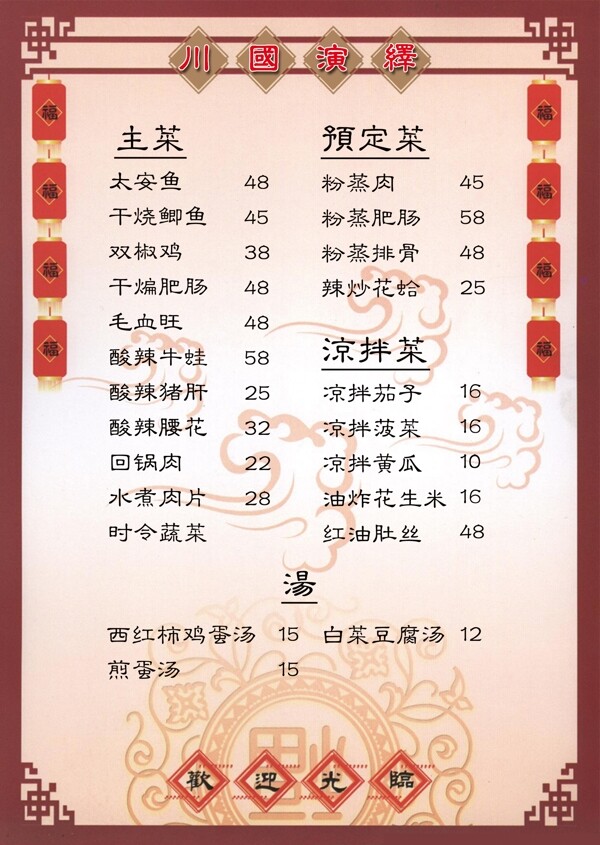 川國演繹
福
福
福
福
福
福
福
福
主菜
太安鱼 48
干烧鲫鱼 45
双椒鸡 38
干煸肥肠 48
毛血旺 48
酸辣牛蛙 58
酸辣猪肝 25
酸辣腰花 32
回锅肉 22
水煮肉片 28
时令蔬菜
預定菜
粉蒸肉 45
粉蒸肥肠 58
粉蒸排骨 48
辣炒花蛤 25
涼拌菜
凉拌茄子 16
凉拌菠菜 16
凉拌黄瓜 10
油炸花生米 16
红油肚丝 48
湯
西红柿鸡蛋汤 15
煎蛋汤 15
白菜豆腐汤 12
歡迎光臨